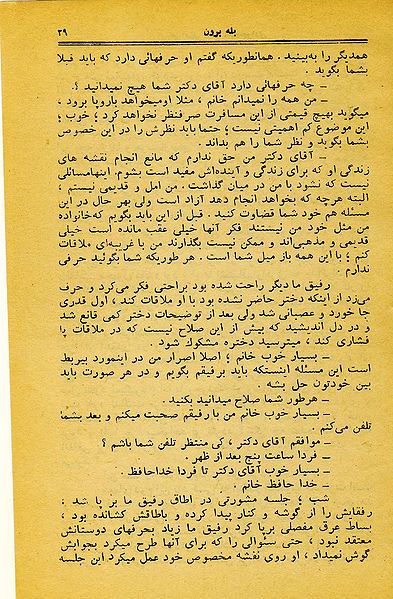 بله برون ۲۹
همدیگر را به‌بینید . همانطوریکه گفتم او حرفهائی دارد که باید قبلا
بشما بگوید .
ــ چه حرفهائی دارد آقای دکتر شما هیچ نمیدانید ؟.
ــ من همه را نمیدانم خانم ، مثلا اومیخواهد باروپا برود ،
میگوید بهیچ قیمتی از این مسافرت صرفنظر نخواهد کرد ؛ خوب ؛
این موضوع کم اهمیتی نیست ؛ حتما باید نظرش را در این خصوص
بشما بگوید و نظر شما را هم بداند .
ــ آقای دکتر من حق ندارم که مانع انجام نقشه های
زندگی او که برای زندگی و آینده‌اش مفید است بشوم. اینهامسائلی
نیست که نشود با من در میان گذاشت . من امل و قدیمی نیستم ،
البته هرچه که بخواهد انجام دهد آزاد است ولی بهر حال در این
مسئله هم خود شما قضاوت کنید . قبل از این باید بگویم که‌خانواده
من مثل خود من نیستند فکر آنها خیلی عقب مانده است خیلی
قدیمی و مذهبی‌اند و ممکن نیست بگذارند من با غریبه‌ای ملاقات
کنم ؛ با این همه باز میل شما است . هر طوریکه شما بگوئید حرفی
ندارم .
رفیق ما دیگر راحت شده بود براحتی فکر می‌کرد و حرف
می‌زد از اینکه دختر حاضر نشده بود با او ملاقات کند ، اول قدری
جا خورد و عصبانی شد ولی بعد از توضیحات دختر کمی قانع شد
و در دل اندیشید که بیش از این صلاح نیست که در ملاقات پا
فشاری کند ، میترسید دختره مشکوك شود .
ــ بسیار خوب خانم ؛ اصلا اصرار من در اینمورد بیربط
است این مسئله اینستکه باید برفیقم بگویم و در هر صورت باید
بین خودتون حل بشه .
ــ هرطور شما صلاح میدانید بکنید .
ــ بسیار خوب خانم من با رفیقم صحبت میکنم و بعد بشما
تلفن می‌کنم .
ــ موافقم آقای دکتر ، کی منتظر تلفن شما باشم ؟
ــ فردا ساعت پنج بعد از ظهر .
ــ بسیار خوب آقای دکتر تا فردا خداحافظ .
ــ خدا حافظ خانم .
شب ؛ جلسه مشورتی در اطاق رفیق ما بر پا شد ؛
رفقایش را از گوشه و کنار پیدا کرده و باطاقش کشانده بود ،
بساط عرق مفصلی برپا کرد رفیق ما زیاد بحرفهای دوستانش
معتقد نبود ، حتی سئوالی را که برای آنها طرح میکرد بجوابش
گوش نمیداد ، او روی نقشه مخصوص خود عمل میکرد این جلسه